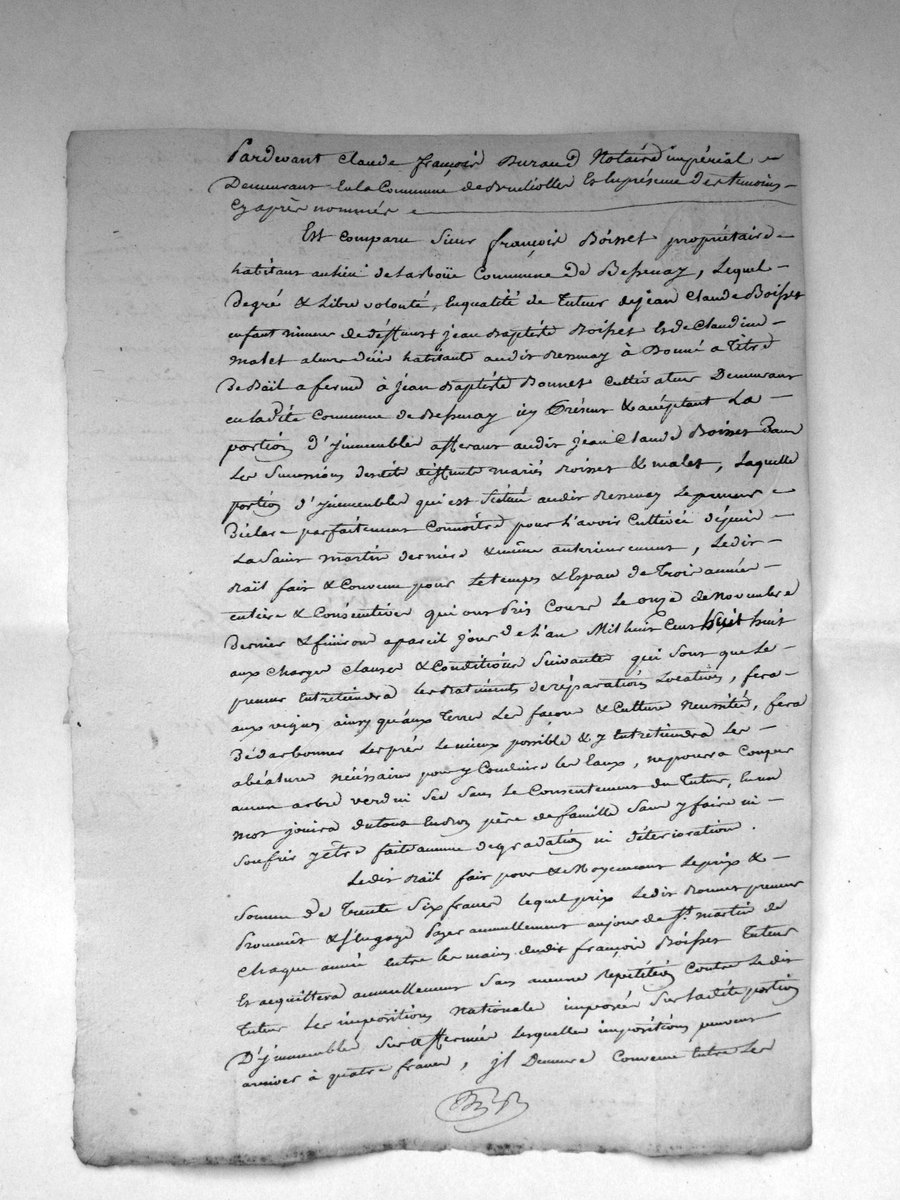 Pardevant Claude françois Durand Notaire impérial
Demeurant En la Commune de Brullioles Et En présence Des temoins
Cy après nommés
Est comparu Sieur françois Boisset propriétaire
habitant au lieu de Larboüe Commune de Bessenay, Lequel
De gré & Libre volonté, En qualité de Tuteur de jean Claude Boisset
enfant mineur de deffunts jean Baptiste Boisset Et de Claudine
malet a leurs décès habitants audit Bessenay à Donné a Titre
de Bail a ferme à jean Baptiste Bonnet Cultivateur Demeurant
en la dite Commune de Bessenay icy Présent & acceptant La
portion D'jmmeubles afferant audit jean Claude Boisset Dans
Les Successions desdits deffunts mariés Boisset & malet, Laquelle
portion D'jmmeubles qui est Scitué audit Bessenay Le preneur
Déclare parfaitement Connoitre pour l'avoir Cultivée depuis
La Saint martin dernière & même antérieurement, Ledit
Bail fait & Convenu pour Le temps & Espace de Trois années
entières & Consécutives qui ont Pris Cours Le onze de Novembre
dernier & finiront a pareil jour de L'an Mil huit Cent huit
aux Charges Clauses & Conditions Suivantes qui Sont que Le
preneur Entretiendra Les Batiments de réparations Locatives, fera
aux vignes ainsy qu'aux Terres Les façons & Culture Necessités, fera
Les prés Le mieux possible & y Entretiendra Les
nécéssaires pour y Conduire les Eaux, ne pourra Couper
aucun arbre verd ni Sec Sans Le Consentement du Tuteur, En un
mot jouira du tout En bon père de famille Sans y faire ni
Soufrir y être fait aucune dégradation ni déterioration.
Ledit Bail fait pour & Moyennant Le prix &
Somme de Trente Six francs Lequel prix Ledit Bonnet preneur
Promet & S'Engage Payer annuellement au jour de St. martin de
Chaque année Entre les mains dudit françois Boisset Tuteur
Et acquittera annuellement Sans aucune répétition Contre Ledit
Tuteur Les impositions Nationale imposées Sur Ladite portion
D'jmmeubles Sus affermée Lesquelles impositions peuvent
arriver à quatre francs, jl Demeure Convenu Entre Les